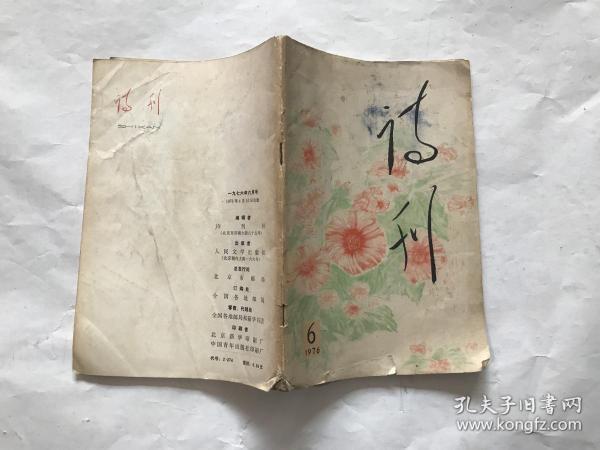 诗刊
6
1976
诗刊
一九七六年六月号
编辑者
诗刊社
出版者
人民文学出版社
总发行处
北京市邮局
订购处
全国各地邮局
零售、代销处
全国各地邮局和新华书店
印刷者
北京新华印刷厂
中国青年出版社印刷厂
代号:2-274
孔夫子旧书网
www.kongfz.com